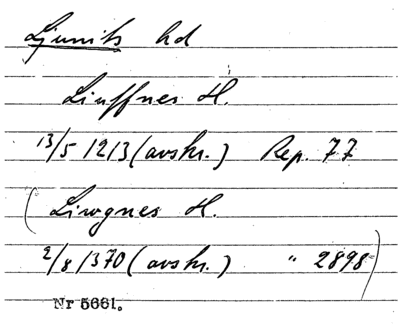 Ljunits hd
Liuffnes H.
13/5 1213 (avskr.) Rep. 77
(Liwgnes H.
2/8 1370 (avskr.) " 2898)
Nr 5661.